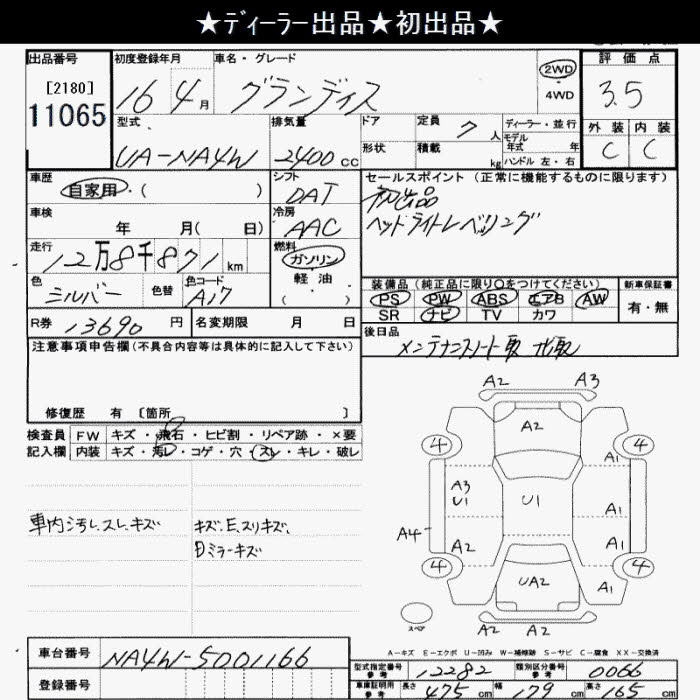 ★ディーラー出品★初出品★
出品番号
[2180]
11065
初度登録年月
16 4月
車名・グレード
グランディス
2WD
・
4WD
評価点
3.5
外装 内装
C C
型式
UA-NA4W
排気量
2400cc
ドア
形状
定員 7人
積載 kg
ディーラー・並行
モデル年式 年
ハンドル 左・右
車歴
自家用・( )
シフト
DAT
車検
年 月( 日)
冷房
AAC
走行
12万8千871km
燃料
ガソリン
軽油
・( )
色
シルバー
色替
色コード
A17
R券 13690円
名変期限 月 日
セールスポイント (正常に機能するものに限ります)
初出品
ヘッドライトレベリング
装備品 (純正品に限り○をつけてください)
PS PW ABS エアB AW
SR ナビ TV カワ
新車保証書
有・無
後日品
メンテナンスノート
注意事項申告欄(不具合内容等は具体的に記入して下さい)
修復歴 有 [箇所 ]
検査員記入欄
FW キズ・飛石・ヒビ割・リペア跡・×要
内装 キズ・汚レ・コゲ・穴・スレ・キレ・破レ
車内汚レ、スレ、キズ
キズ、E、スリキズ、
Dミラーキズ
A2 A3
A2
4 4
A1
A3
U1
U1
A1
A4
A2
A1
4 4
UA2
A1
A2 A2
スペア
A-キズ E-エクボ U-凹み W-補修跡 S-サビ C-腐食 XX-交換済
車台番号
NA4W-5001166
登録番号
型式指定番号
参考
12282
類別区分番号
参考
0066
車庫証明用
参考
長さ 475cm 幅 179cm 高さ 165cm